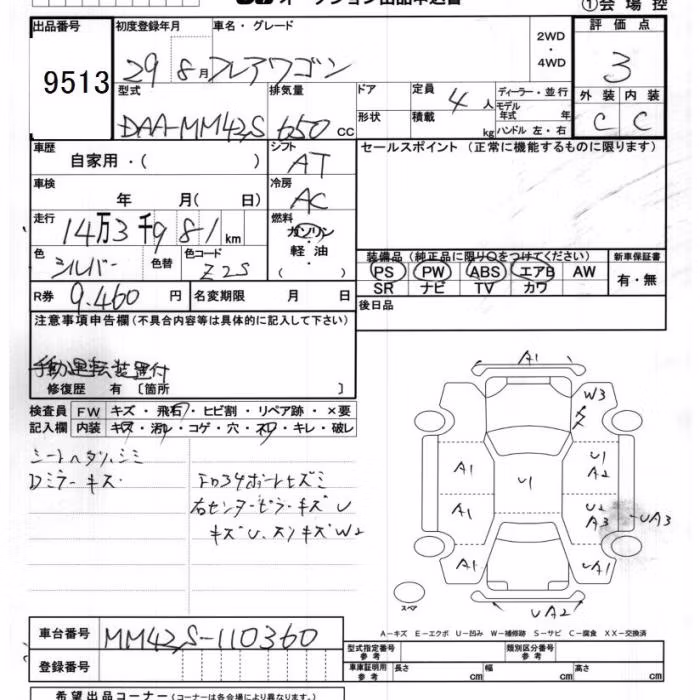 オークション出品申込書
①会場控
出品番号
9513
初度登録年月
車名・グレード
29年8月 フレアワゴン
2WD
・
4WD
評価点
3
外装 内装
C C
型式
DAA-MM42S
排気量
650 cc
ドア
形状
定員 4人
積載 kg
ディーラー・並行
モデル年式 年
ハンドル 左・右
車歴
自家用・( )
シフト
AT
セールスポイント (正常に機能するものに限ります)
車検
年 月( 日)
冷房
AC
走行
14万3千981km
燃料
ガソリン
・
軽油
・
( )
色
シルバー
色替
色コード
Z2S
装備品 (純正品に限り○をつけてください)
PS PW ABS エアB AW
SR ナビ TV カワ
新車保証書
有・無
R券 9.460円
名変期限 月 日
後日品
注意事項申告欄 (不具合内容等は具体的に記入して下さい)
手動運転装置付
修復歴 有 〔箇所 〕
検査員記入欄
FW キズ・飛石・ヒビ割・リペア跡・×要
内装 キズ・汚レ・コゲ・穴・スレ・キレ・破レ
シートヘタリ、シミ
Dミラーキズ
右センターピラーキズU
キズU、スリキズW2
A1
W3
A1
U1
U1
A2
A1
U2
A3
UA3
A1
UA1
スペア
UA2
A-キズ E-エクボ U-凹み W-補修跡 S-サビ C-腐食 XX-交換済
車台番号 MM42S-110360
登録番号
型式指定番号 参考
類別区分番号 参考
車庫証明用 参考
長さ cm 幅 cm 高さ cm
希望出品コーナー (コーナーは各会場により異なります。)